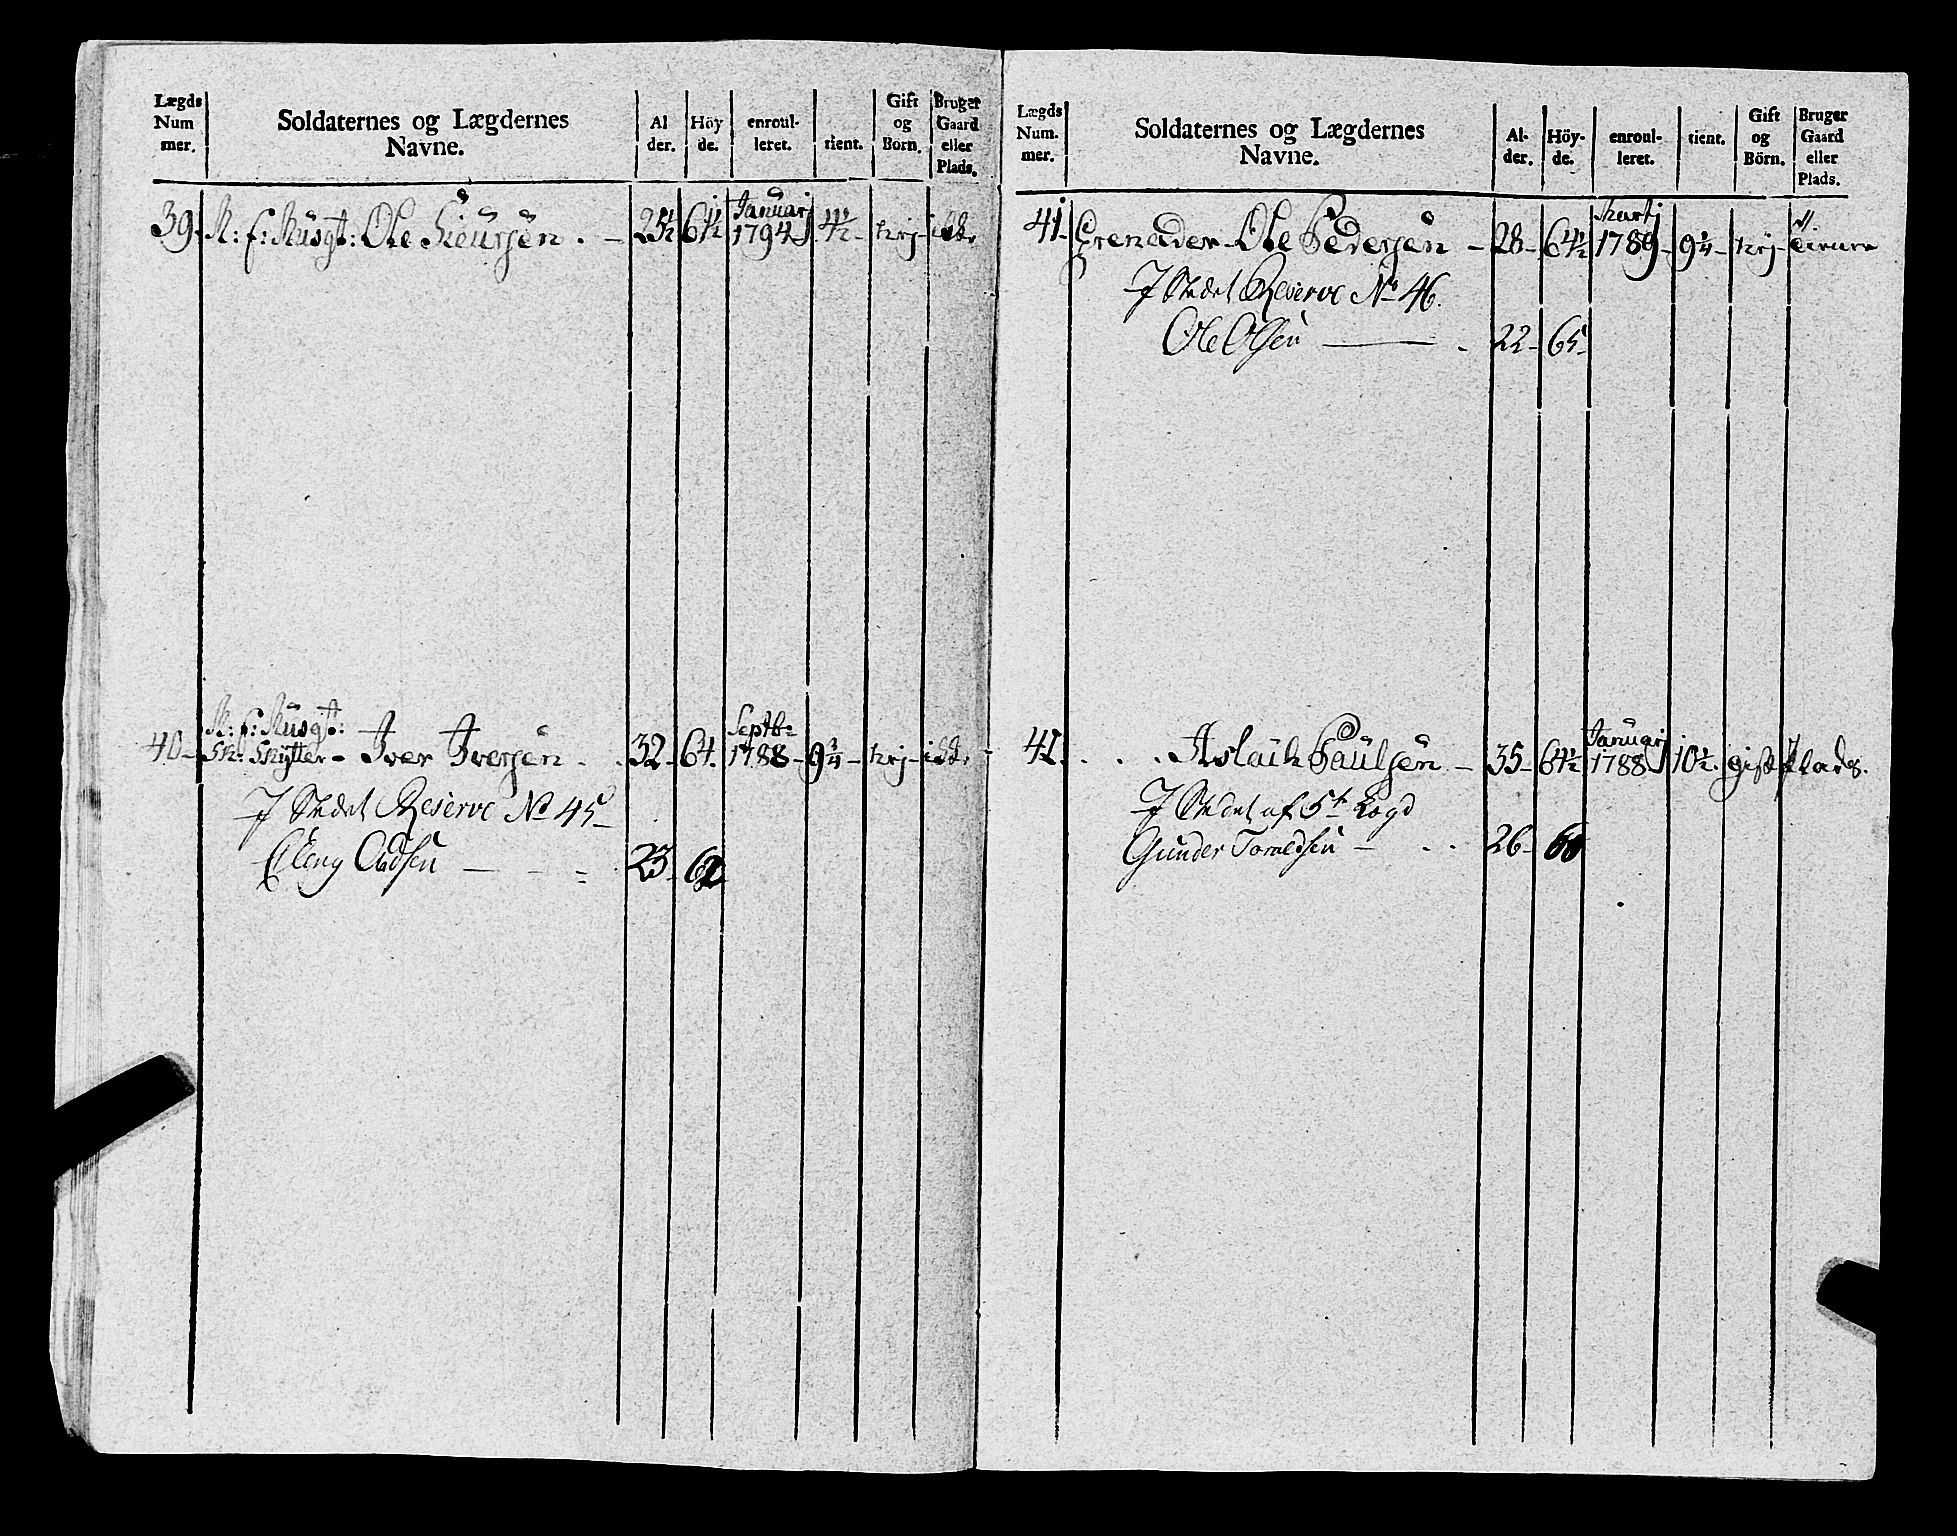 Lægds Num mer. Soldaternes og Lægdernes Navne. Al der. Höy de. enroul- leret. tient. Gift og Born. Bruger Gaard eller Plads.
39. Ole Sieursen. 25½ 64½ Januarj 1794 4½ ikke
40 Sk: Skytter - Iver Iversen 32 64. Septb: 1788 9¾ ikke
I Stædet Reserve No 45
Elleng Oddsen 23 62
Lægds Num. mer. Soldaternes og Lægdernes Navne. Al- der. Höy- de. enroul- leret. tient. Gift og Börn. Bruger Gaard eller Plads.
41. Grenader Ole Pedersen 28 64½ Martj 1789 9¼ tiener
I Stædet Reserve No 46.
Ole Olsen 22 65
42. Aslach Paulsen 35 64½ Januarj 1788 10½. gift plads.
I Stædet af 5t Lægd
Gunder Toraldsen 26